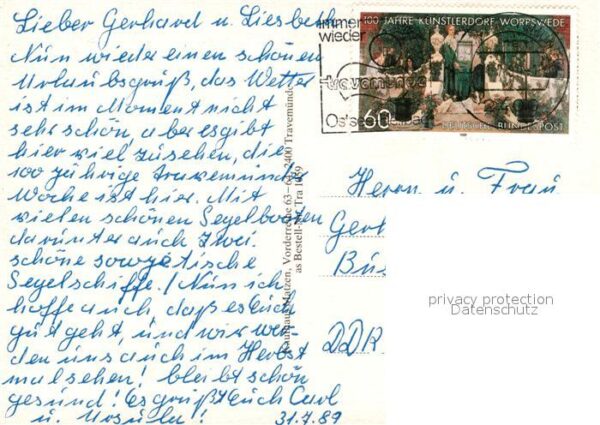 Lieber Gerhard u. Liesbeth
Nun wieder einen schönen
Urlaubsgruß, das Wetter
ist im Moment nicht
sehr schön, aber es gibt
hier viel zu sehen, die
100 jährige Travemünder
Woche ist hier. Mit
vielen schönen Segelbooten
darunter auch zwei
schöne sowjetische
Segelschiffe. Nun ich
hoffe auch daß es Euch
gut geht, und wir wer-
den uns auch im Herbst
mal sehen! bleibt schön
gesund! Es grüßt Euch Carl
u. Ursula!
31.7.89
immer
wieder
travemünde
100 JAHRE KÜNSTLERDORF WORPSWEDE
60
DEUTSCHE BUNDESPOST
Matzen, Vorderreihe 63
2400 Travemünde
Bestell-Nr. Tra
Herrn u. Frau
Gerh
DDR
privacy protection
Datenschutz